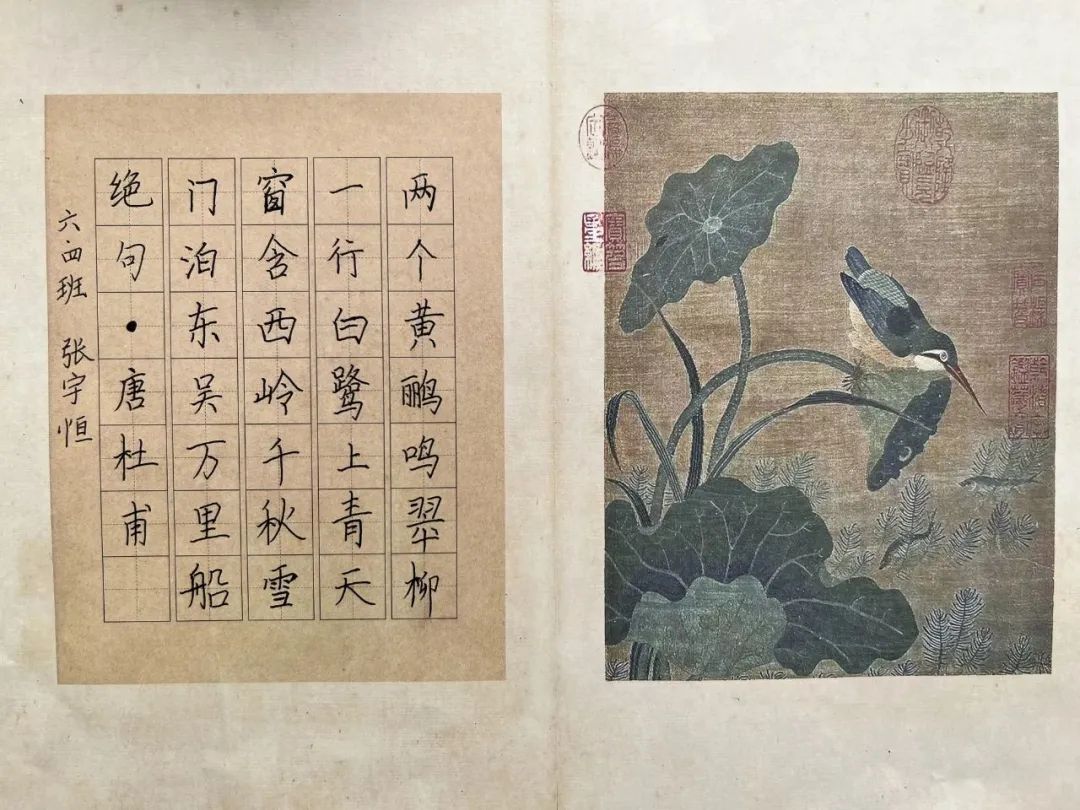 两个黄鹂鸣翠柳
一行白鹭上青天
窗含西岭千秋雪
门泊东吴万里船
绝句·唐杜甫
六四班 张宇恒